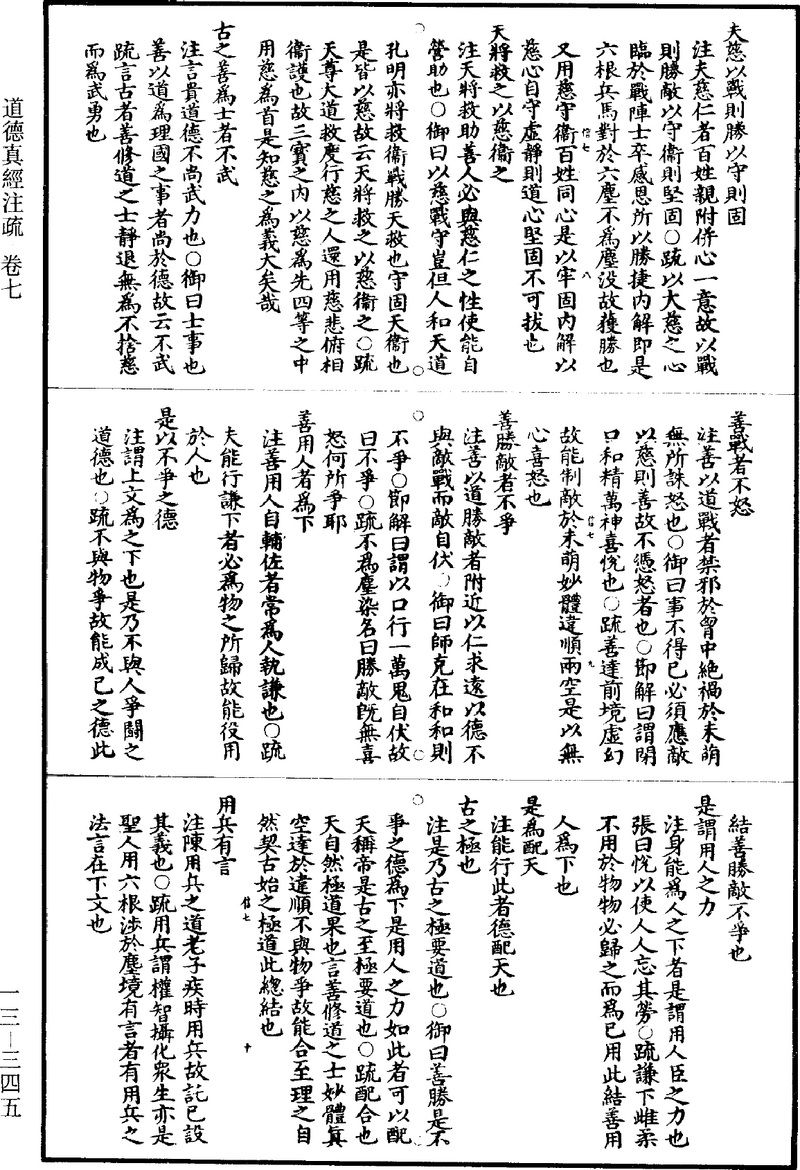 道德真經注疏　卷七
一三—三四五
夫慈以戰則勝以守則固
注夫慈仁者百姓親附併心一意故以戰
則勝敵以守衛則堅固○疏以大慈之心
臨於戰陣士卒感恩所以勝捷內解即是
六根兵馬對於六塵不爲塵没故獲勝也
信七
八
又用慈守衛百姓同心是以牢固內解以
慈心自守虛靜則道心堅固不可拔也
天將救之以慈衛之
注天將救助善人必與慈仁之性使能自
營助也○御曰以慈戰守豈但人和天道
孔明亦將救衛戰勝天救也守固天衛也
是皆以慈故云天將救之以慈衛之○疏
天尊大道救慶行慈之人還用慈悲俯相
衛護也故三寶之內以慈爲先四等之中
用慈爲首是知慈之爲義大矣哉
古之善爲士者不武
注言貴道德不尚武力也○御曰士事也
善以道爲理國之事者尚於德故云不武
疏言古者善修道之士靜退無爲不捨慈
而爲武勇也
善戰者不怒
注善以道戰者禁邪於胷中絶禍於未萌
無所誅怒也○御曰事不得已必須應敵
以慈則善故不憑怒者也○節解曰謂閉
口和精萬神喜悅也○疏善達前境虛幻
信七
九
故能制敵於未萌妙體違順兩空是以無
心喜怒也
善勝敵者不爭
注善以道勝敵者附近以仁求遠以德不
與敵戰而敵自伏○御曰師克在和和則
不爭○節解曰謂以口行一萬鬼自伏故
曰不爭○疏不爲塵染名曰勝敵旣無喜
怒何所爭耶
善用人者爲下
注善用人自輔佐者常爲人執謙也○疏
夫能行謙下者必爲物之所歸故能役用
於人也
是以不爭之德
注謂上文爲之下也是乃不與人爭鬪之
道德也○疏不與物爭故能成已之德此
結善勝敵不爭也
是謂用人之力
注身能爲人之下者是謂用人臣之力也
張曰悅以使人人忘其勞○疏謙下雌柔
不用於物物必歸之而爲已用此結善用
人爲下也
是爲配天
注能行此者德配天也
古之極也
注是乃古之極要道也○御曰善勝是不
爭之德爲下是用人之力如此者可以配
天稱帝是古之至極要道也○疏配合也
天自然極道果也言善修道之士妙體真
空達於違順不與物爭故能合至理之自
然契古始之極道此總結也
信七
十
用兵有言
注陳用兵之道老子疾時用兵故託已設
其義也○疏用兵謂權智攝化衆生亦是
聖人用六根涉於塵境有言者有用兵之
法言在下文也